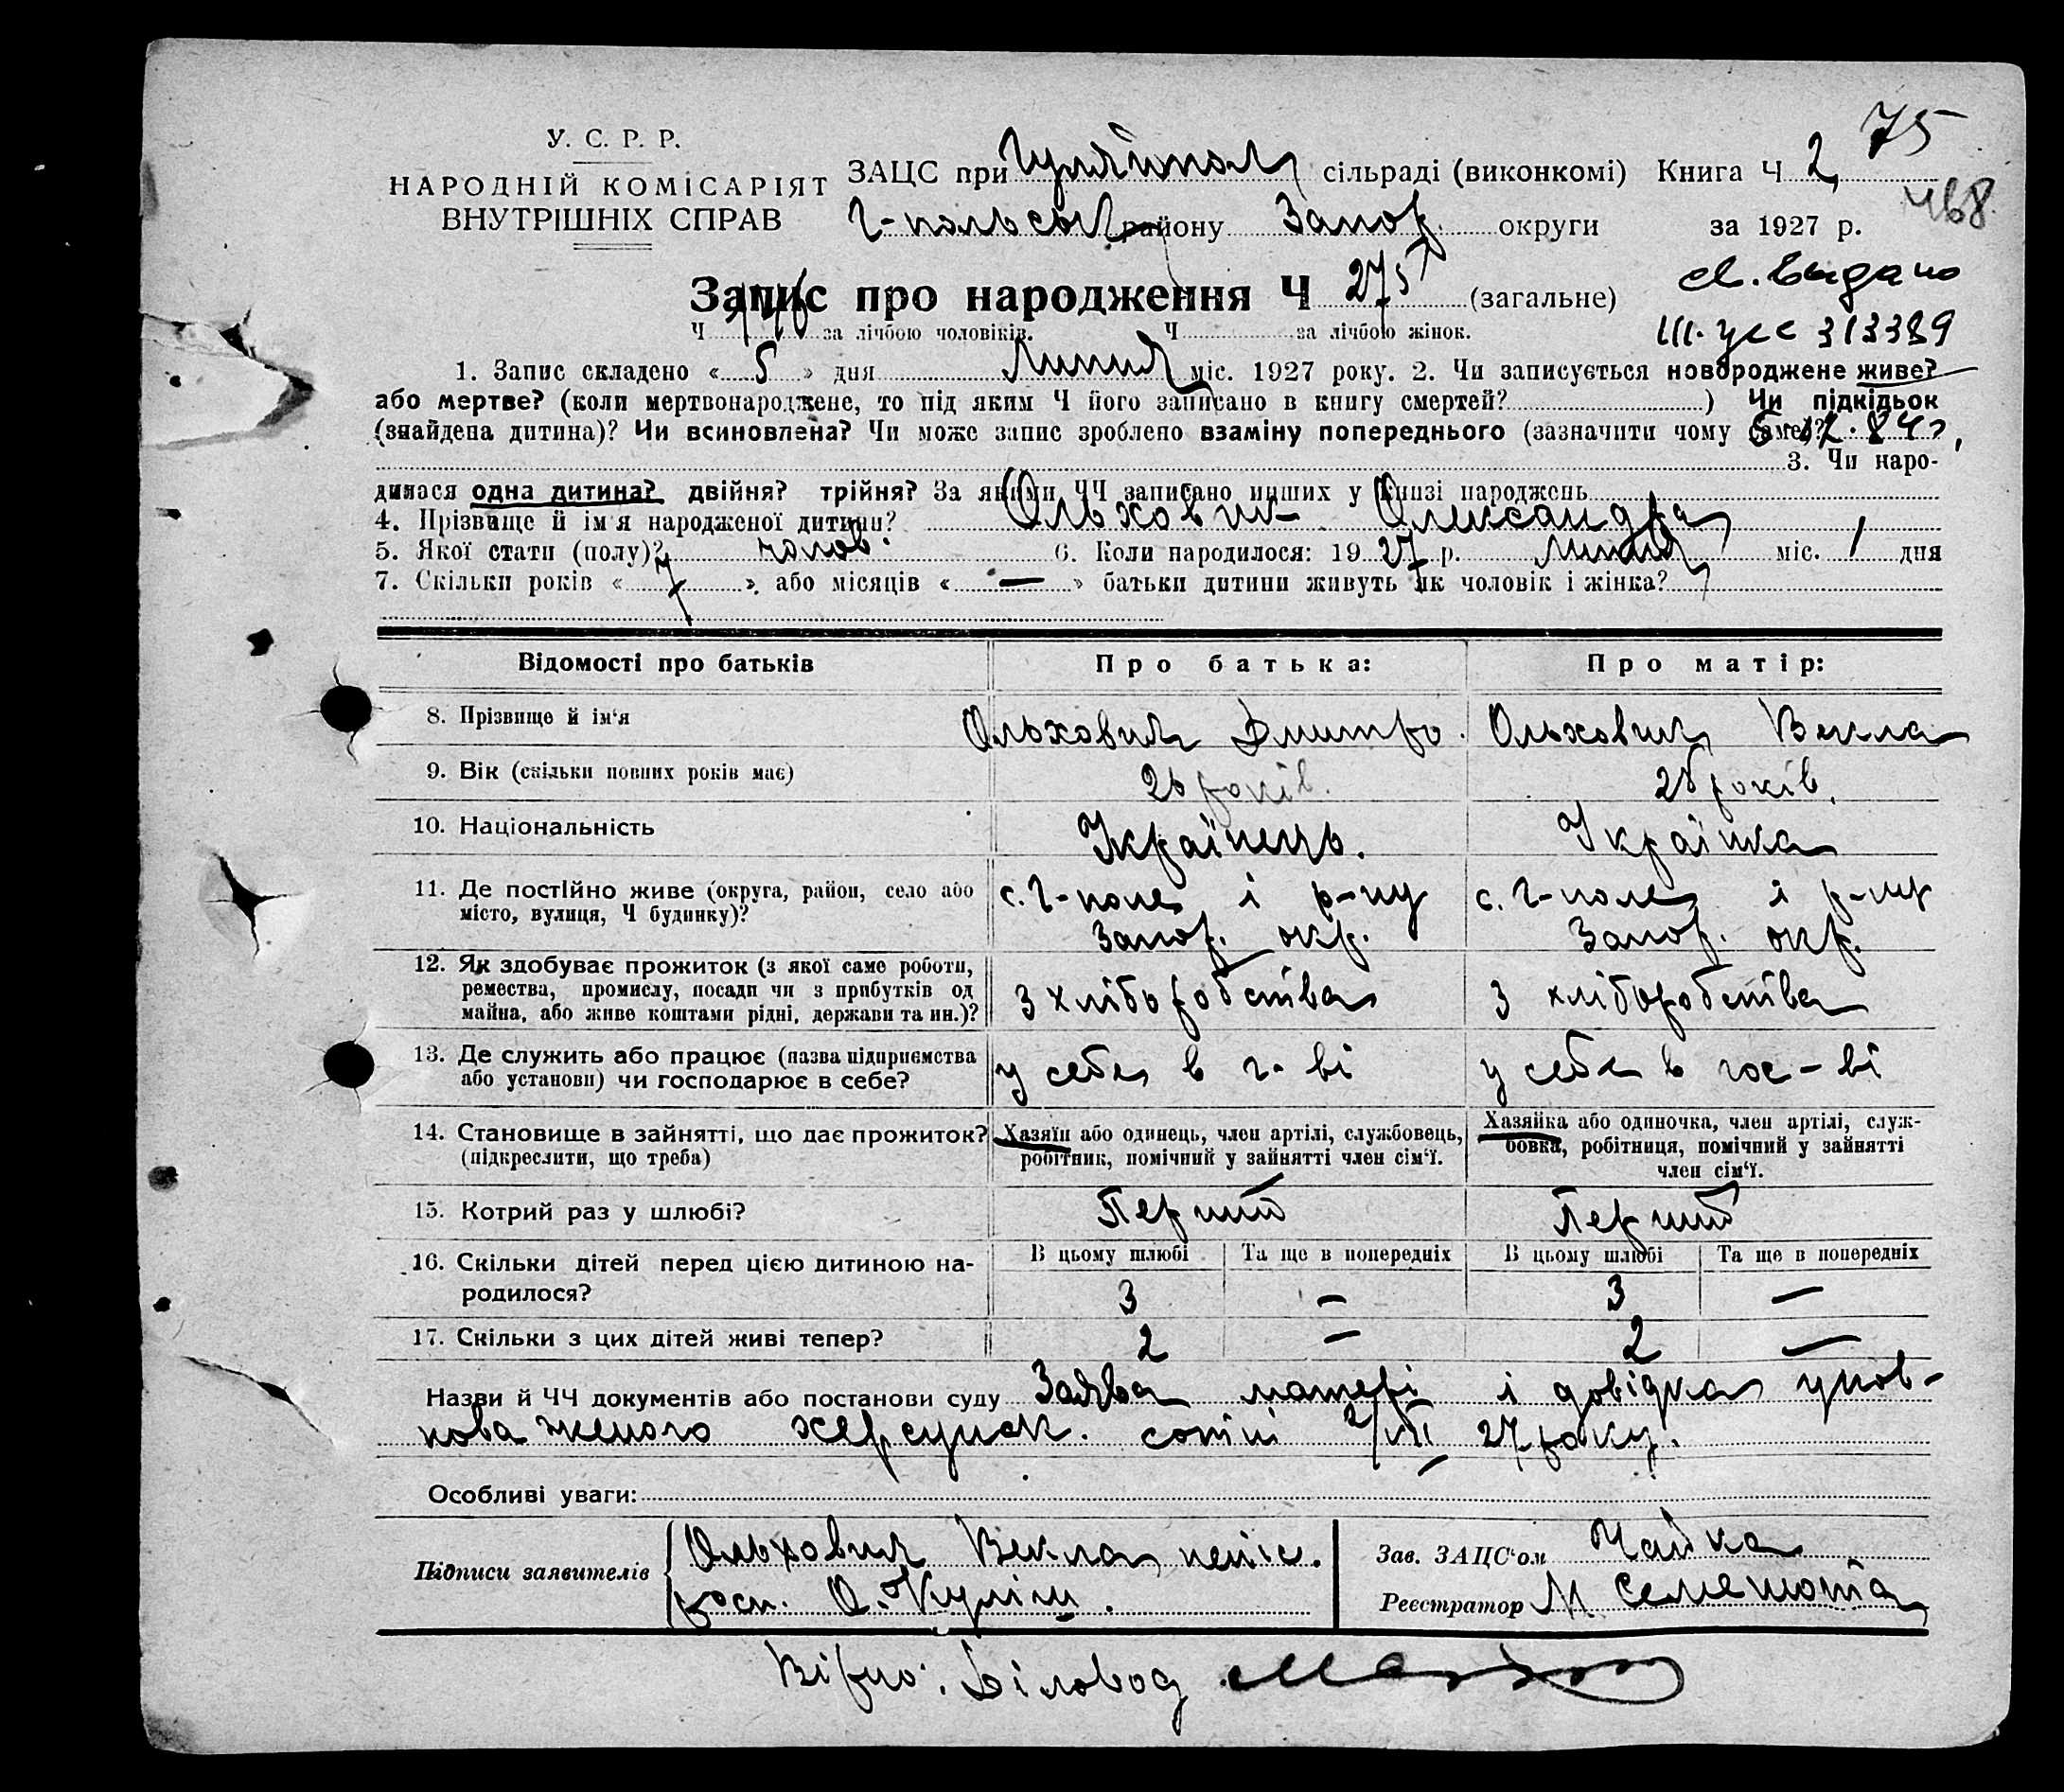 75
У. С. Р. Р.
НАРОДНІЙ КОМІСАРІЯТ
ВНУТРІШНІХ СПРАВ
ЗАЦС при Гуляйпол сільраді (виконкомі) Книга Ч 2
468
Г-польськ району Запор. округи за 1927 р.
Запис про народження Ч 275 (загальне)
св. выдано
Ч 146 за лічбою чоловіків. Ч за лічбою жінок.
III. 313389
1. Запис складено « 5 » дня Липня міс. 1927 року. 2. Чи записується новороджене живе?
або мертве? (коли мертвонароджене, то під яким Ч його записано в книгу смертей? ) Чи підкідьок
(знайдена дитина)? Чи всиновлена? Чи може запис зроблено взаміну попереднього (зазначити чому саме)?
3. Чи наро-
дилася одна дитина? двійня? трійня? За якими ЧЧ записано инших у книзі народжень
4. Прізвище й ім'я народженої дитини? Ольховик Олександра
5. Якої стати (полу)? чолов. 6. Коли народилося: 1927 р. Липня міс. 1 дня
7. Скільки років « 7 », або місяців « — » батьки дитини живуть як чоловік і жінка?
Відомості про батьків Про батька: Про матір:
8. Прізвище й ім'я Ольховик Дмитро. Ольховик Векла
9. Вік (скільки повних років має) 26 років. 25 років.
10. Національність Українець. Українка
11. Де постійно живе (округа, район, село або с. Г-поле і р-ну с. Г-поле і р-ну
місто, вулиця, Ч будинку)? Запор. окр. Запор. окр.
12. Як здобуває прожиток (з якої саме роботи,
ремества, промислу, посади чи з прибутків од з хліборобства з хліборобства
майна, або живе коштами рідні, держави та ин.)?
13. Де служить або працює (назва підприємства у себе в г-ві у себе в гос-ві
або установи) чи господарює в себе?
14. Становище в зайнятті, що дає прожиток? Хазяїн або одинець, член артілі, службовець, Хазяйка або одиночка, член артілі, служ-
(підкреслити, що треба) робітник, помічний у зайнятті член сім'ї. бовка, робітниця, помічний у зайнятті
член сім'ї.
15. Котрий раз у шлюбі? Перший Перший
16. Скільки дітей перед цією дитиною на- В цьому шлюбі Та ще в попередніх В цьому шлюбі Та ще в попередніх
родилося? 3 — 3 —
17. Скільки з цих дітей живі тепер? 2 — 2 —
Назви й ЧЧ документів або постанови суду Заява матері і довідка упов-
новаженого херсунск. сотні 2/VII 27 року.
Особливі уваги:
Підписи заявителів Ольховик Векла непис. Зав. ЗАЦС'ом Чайка
росп. О. Куліш. Реєстратор М Семенота
Вірно: Діловод